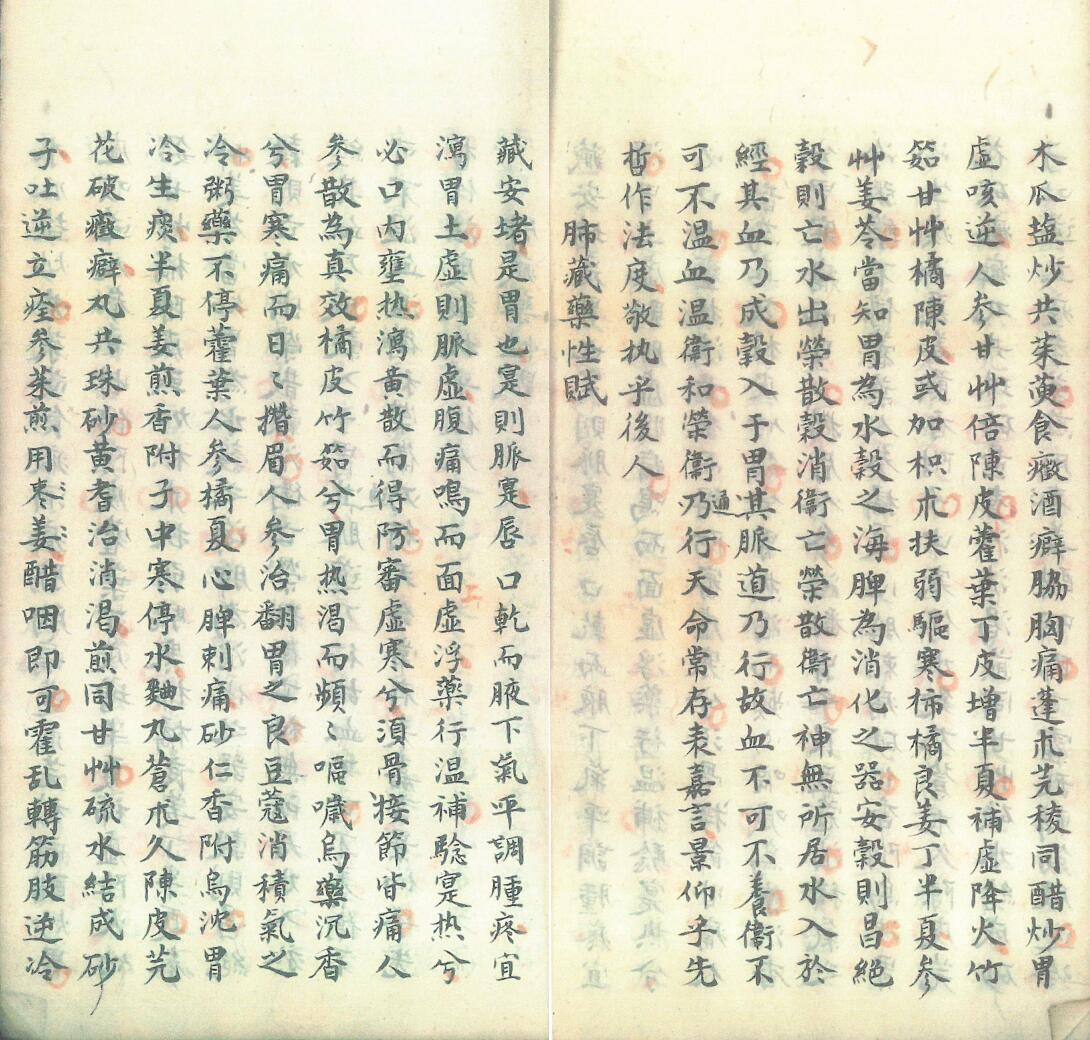 藏安堵是胃也寔則脈寔唇口乾而腋下氣平調腫疼宜
瀉胃土虛則脈虛腹痛鳴而面虛浮藥行温補驗寔热兮
必口内壅热瀉黄散而得防審虛寒兮須骨接節皆痛人
参散為真效橘皮竹筎兮胃热渇而頻〻嘔噦烏藥沉香
兮胃寒痛而日〻攢眉人参治翻胃之良豆蔻消積氣之
冷粥藥不停藿葉人参橘夏心脾刺痛砂仁香附烏沈胃
冷生痰半夏姜煎香附子中寒停水麯丸蒼朮久陳皮芫
花破癥癖丸共珠砂黄耆治消渴煎同甘艸硫水結成砂
子吐逆立痊参茱煎用枣姜醋咽即可霍乱轉筋肢逆冷
木瓜塩炒共茱萸食癥酒癖脇胸痛蓬朮芫稜同醋炒胃
虛咳逆人参甘艸倍陳皮藿葉丁皮增半夏補虛降火竹
筎甘艸橘陳皮或加枳朮扶弱驅寒柿橘良姜丁半夏参
艸姜苓當知胃為水穀之海脾為消化之器安穀則昌絕
穀則亡水出榮散穀消衛亡榮散衛亡神無所居水入於
經其血乃成穀入于胃其脈道乃行故血不可不養衛不
可不温血温衛和榮衛乃通行天命常存表嘉言景仰乎先
哲作法度敬执乎後人
肺藏藥性賦